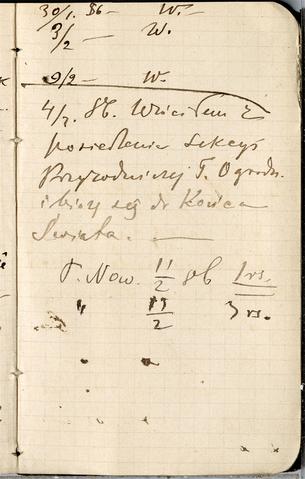 30/1. 86 — W. —
3/2 — W.
9/2 — W.
4/2. 86. Wróciłem z
posiedzenia sekcyi
Przyrodniczej T. Ogrodn.
i idzie się do Końca
Świata. —
P. Now. 11/2 86 1 rs.
" 13/2 3 rs.
" "